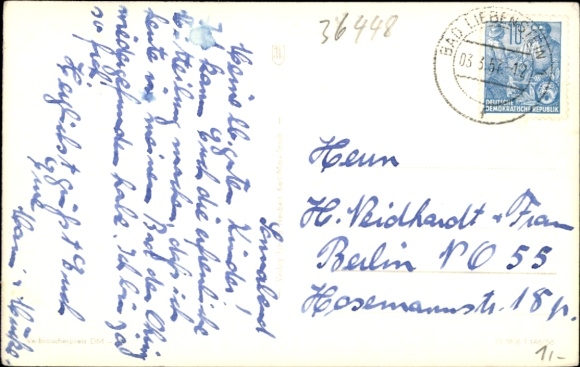 36448
BAD LIEBENSTEIN
03.3.57.-19
10
DEUTSCHE
DEMOKRATISCHE REPUBLIK
Sonnabend
Meine lb. guten Kinder!
Ich kann Euch die erfreuliche
Mitteilung machen, daß ich
heute in meinem Bad den Ring
wiedergefunden habe. Ich bin ja
so froh.
Herzlichst grüßt Euch
Eure
Herrn
H. Neidhardt + Frau
Berlin NO 55
Hosemannstr. 18 p.
1,-